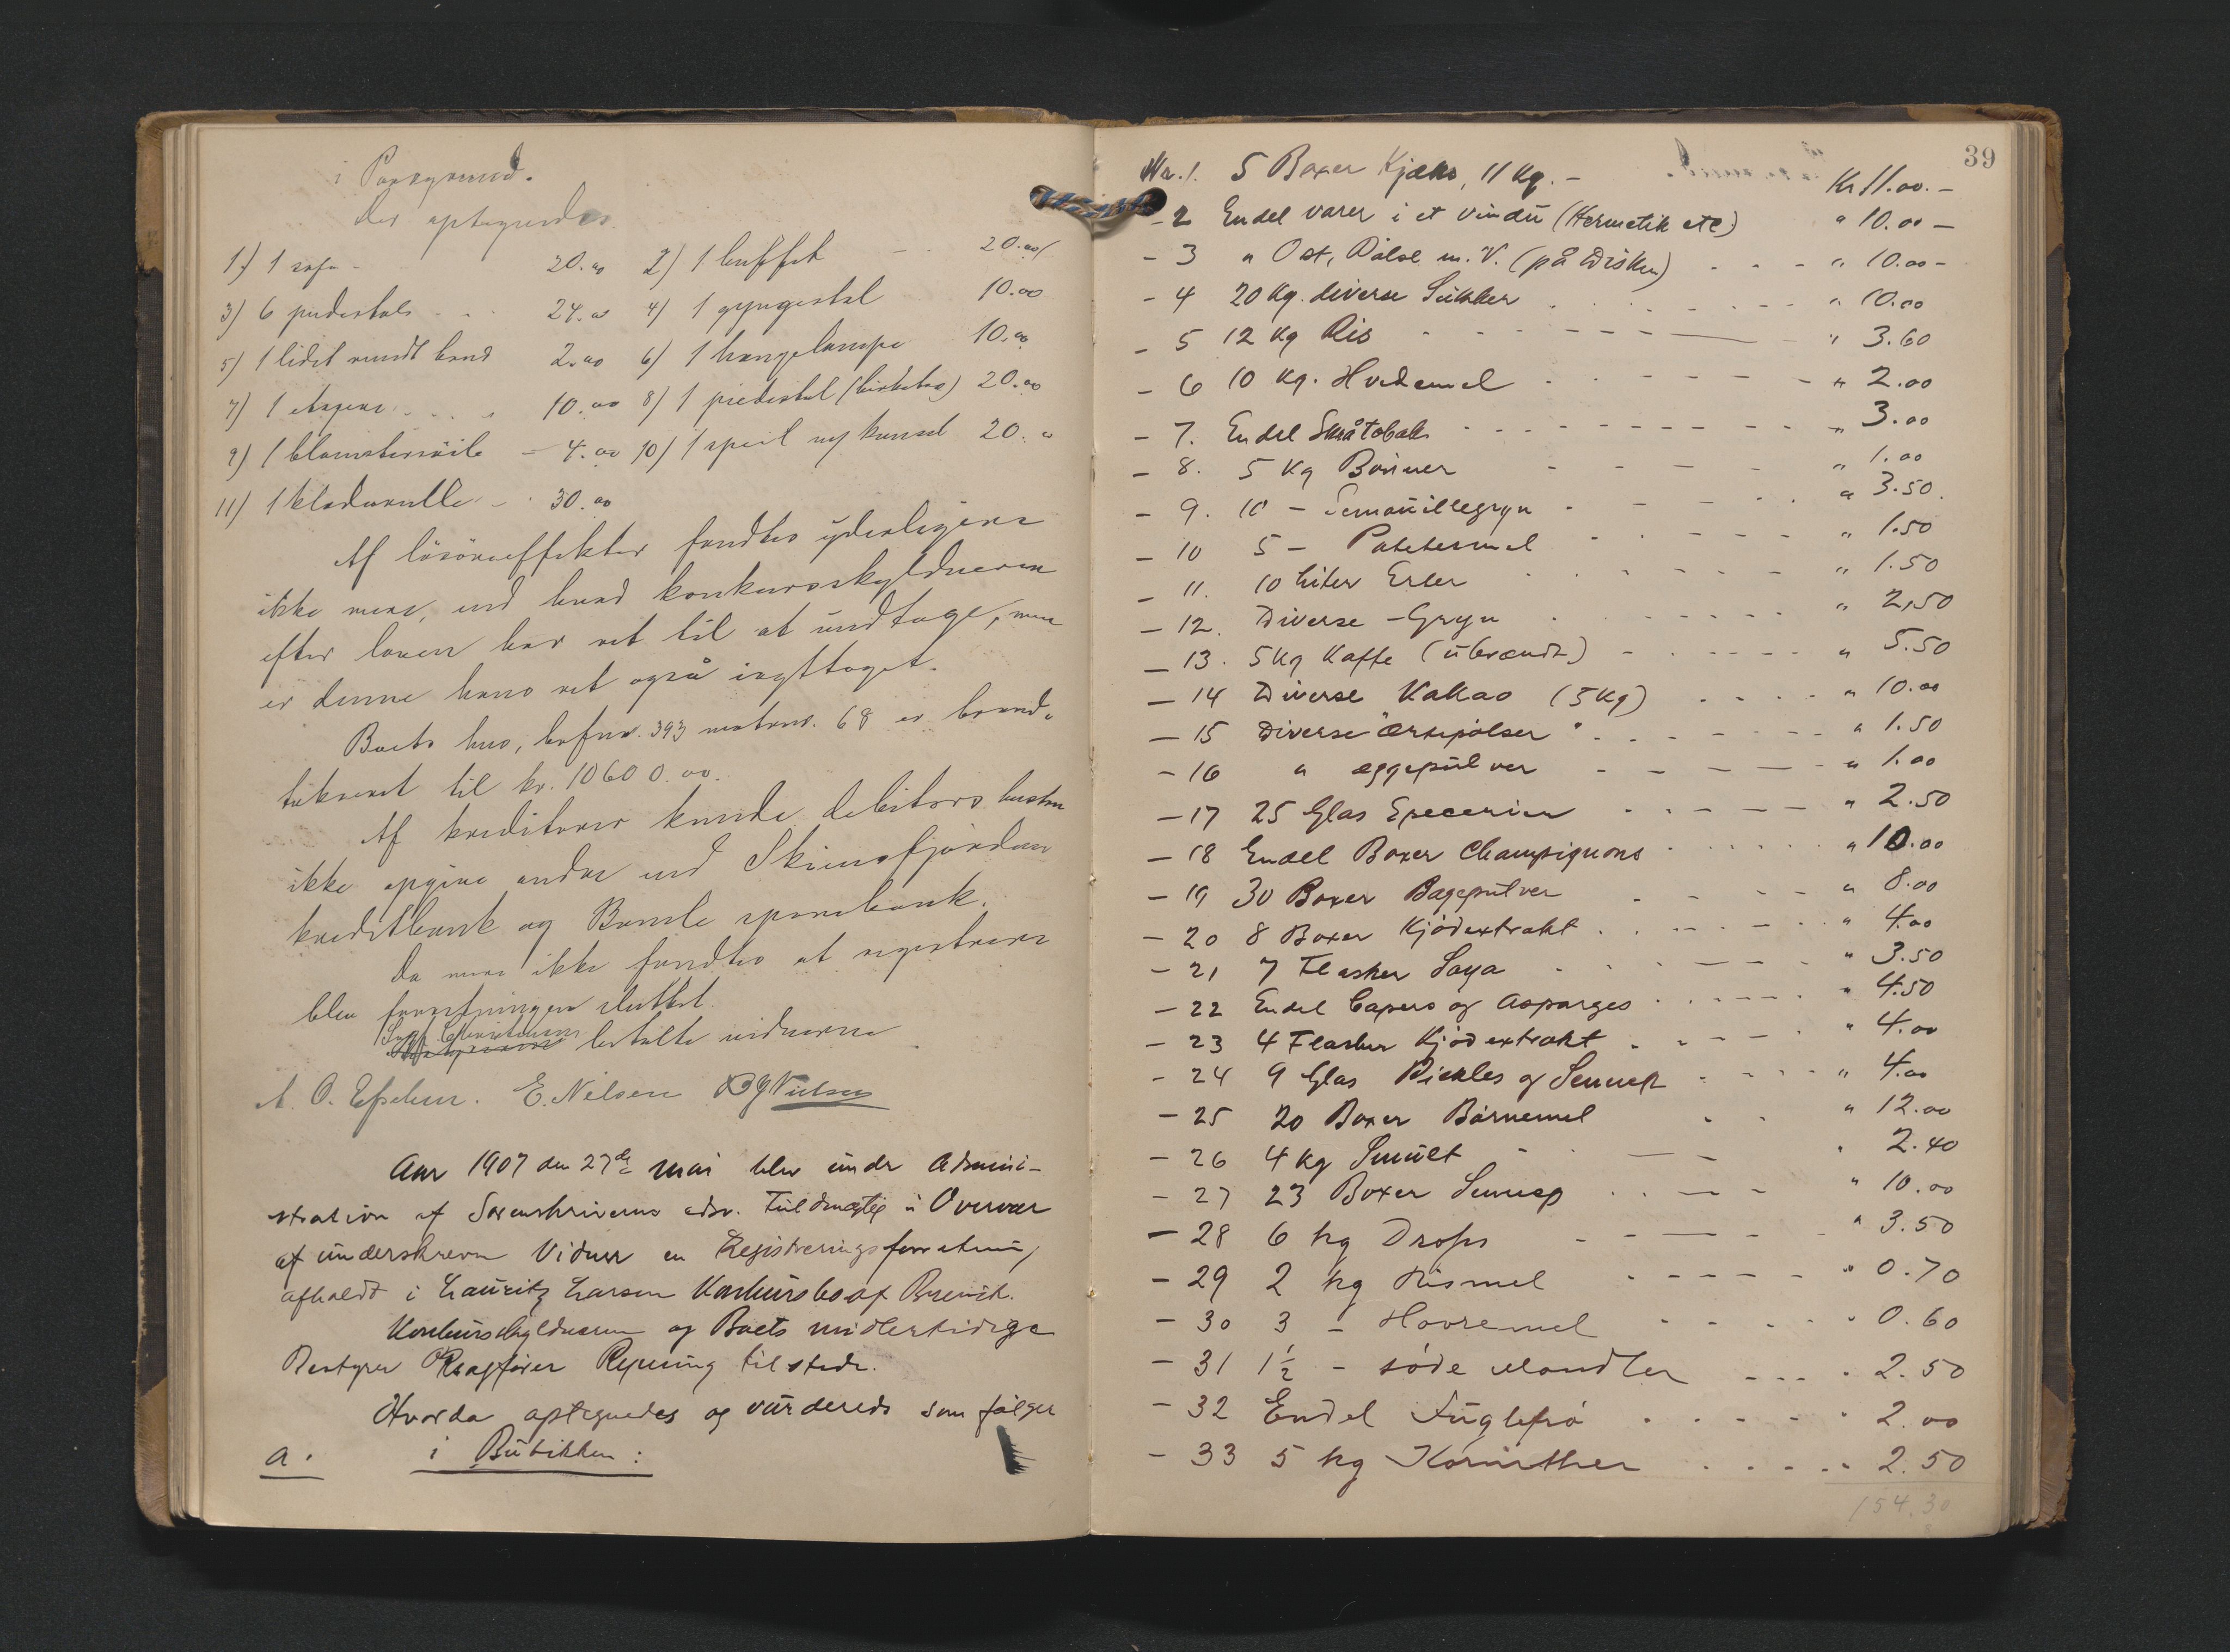 i Porsgrund.
Der optegnedes
1) 1 sofa - 20.00 2) 1 buffet - 20.00
3) 6 pudestole - 24.00 4) 1 gyngestol 10.00
5) 1 lidet rundt bord 2.00 6) 1 hængelampe 10.00
7) 1 etagere 10.00 8) 1 piedestal 20.00
9) 1 blomstersöile - 4.00 10) 1 speil og konsol 20.00
11) 1 klæderulle - 30.00
Af lösöreeffekter fandtes yderligere
ikke mere, end hvad konkursskyldneren
efter loven har ret til at undtage, men
er denne hans ret også iagttaget.
Boets hus, 393 matrnr. 68 er brand-
takseret til kr. 10600.00.
Af kreditorer kunde debitors hustru
ikke opgive andre end Skiensfjordens
kreditbank og Bamle sparebank.
Da mere ikke fandtes at registrere
blev forretningen sluttet.
bestilte vidnerne
E. Nilsen
Aar 1907 den 27de mai blev under Admini-
stration af Sorenskriverens edsv. Fuldmægtig i Overvær
af underskrevne Vidner en Registreringsforretning,
afholdt i Lauritz Larsen Konkursbo af Brevik.
Konkursskyldneren og Boets midlertidige
Bestyrer tilstede.
Hvorda optegnedes og vurderedes som følger
a. i Butikken:
39
Nr. 1. 5 Boxer Kjæks, 11 Kg. - Kr 11.00.-
- 2 Endel varer i et vindu (Hermetik etc) " 10.00 -
- 3 " Ost, Pölse m. V. (på Disken) - - - " 10.00 -
- 4 20 Kg. diverse Sukker - - - " 10.00
- 5 12 Kg Ris - - - " 3.60
- 6 10 Kg. Hvedemel - - - " 2.00
- 7. Endel Skråtobak - - - " 3.00
- 8. 5 Kg Bönner - - - " 1.00
- 9. 10 - Semouillegryn - - - " 3.50
- 10 5 - Potetesmel - - - " 1.50
- 11. 10 Liter Erter - - - " 1.50
- 12. Diverse - Gryn - - - " 2,50
- 13. 5 Kg Kaffe (übrændt) - - - " 5.50
- 14 Diverse Kakao (5 Kg) - - - " 10.00
- 15 Diverse "Ærtepölser" - - - " 1.50
- 16 " eggepulver - - - " 1.00
- 17 25 Glas Specerier - - - " 2.50
- 18 Endel Boxer Champignons - - - " 10.00
- 19 30 Boxer Bagepulver - - - " 8.00
- 20 8 Boxer Kjödextrakt - - - " 4.00
- 21 7 Flasker Soya - - - " 3.50
- 22 Endel Capers og Asparges - - - " 4.50
- 23 4 Flasker Kjödextrakt - - - " 4.00
- 24 9 Glas Pickles og Sennep - - - " 4.00
- 25 20 Boxer Börnemel - - - " 12.00
- 26 4 Kg Smult - - - " 2.40
- 27 23 Boxer Sennep - - - " 10.00
- 28 6 kg Drops - - - " 3.50
- 29 2 kg Rismel - - - " 0.70
- 30 3 - Havremel - - - " 0.60
- 31 1½ - söde Mandler - - - " 2.50
- 32 Endel Fuglefrö - - - " 2.00
- 33 5 kg Korinther - - - " 2.50
154.30